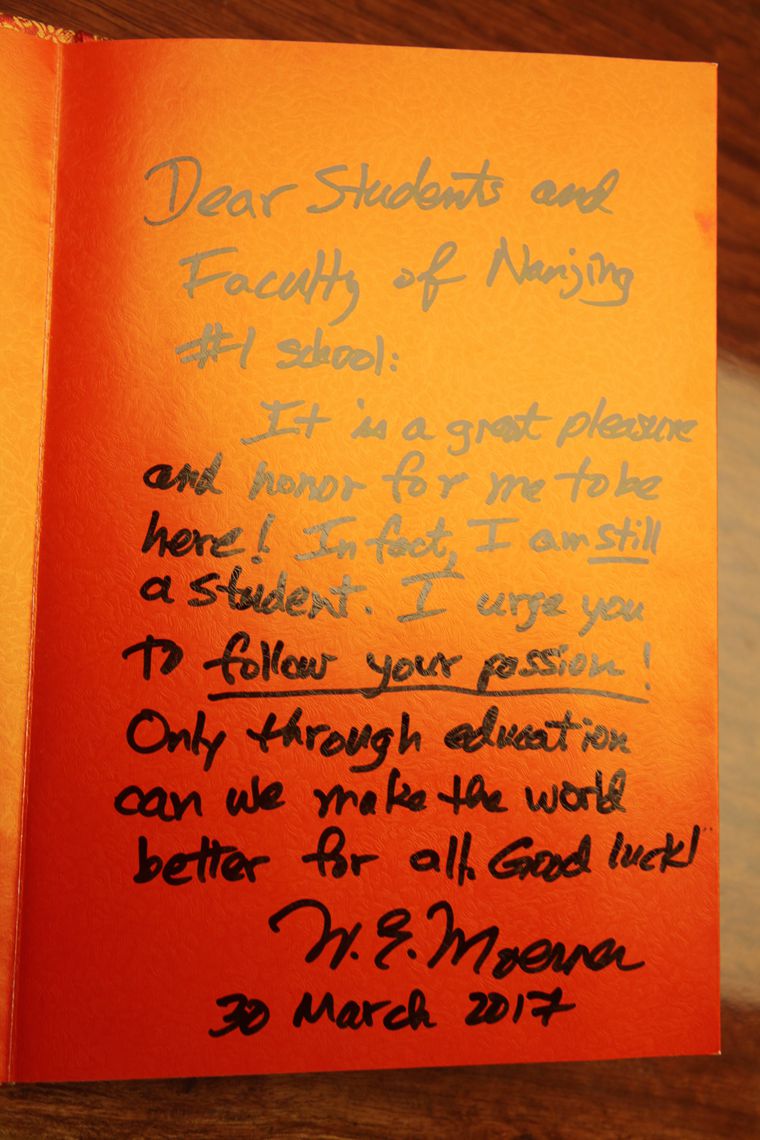 Dear Students and
Faculty of Nanjing
#1 school:
It is a great pleasure
and honor for me to be
here! In fact, I am still
a student. I urge you
to follow your passion!
Only through education
can we make the world
better for all. Good luck!
W. E. Moerner
30 March 2017